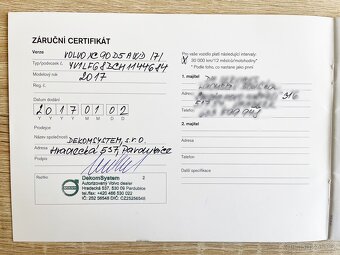 ZÁRUČNÍ CERTIFIKÁT
Verze VOLVO XC 90 D5 AWD 171
Typ/podvozek č. YV1LFG8DCH1144684
Modelový rok 2017
Reg. č.
Datum dodání
2017 01 02
Y Y Y Y M M D D
Prodejce
Název společnosti DEKOMSYSTEM, s.r.o.
Adresa Hradecká 537, Pardubice
Podpis
Razítko
DekomSystem 2
Autorizovaný Volvo dealer
Hradecká 537, 530 09 Pardubice
tel./fax: +420 466 530 022
Pro vaše vozidlo platí následující intervaly:
30 000 km/12 měsíců/motohodiny*
* Podle toho, co nastane jako první
1. majitel
Adresa
Telefon
2. majitel
Adresa
Telefon
Další specifikace